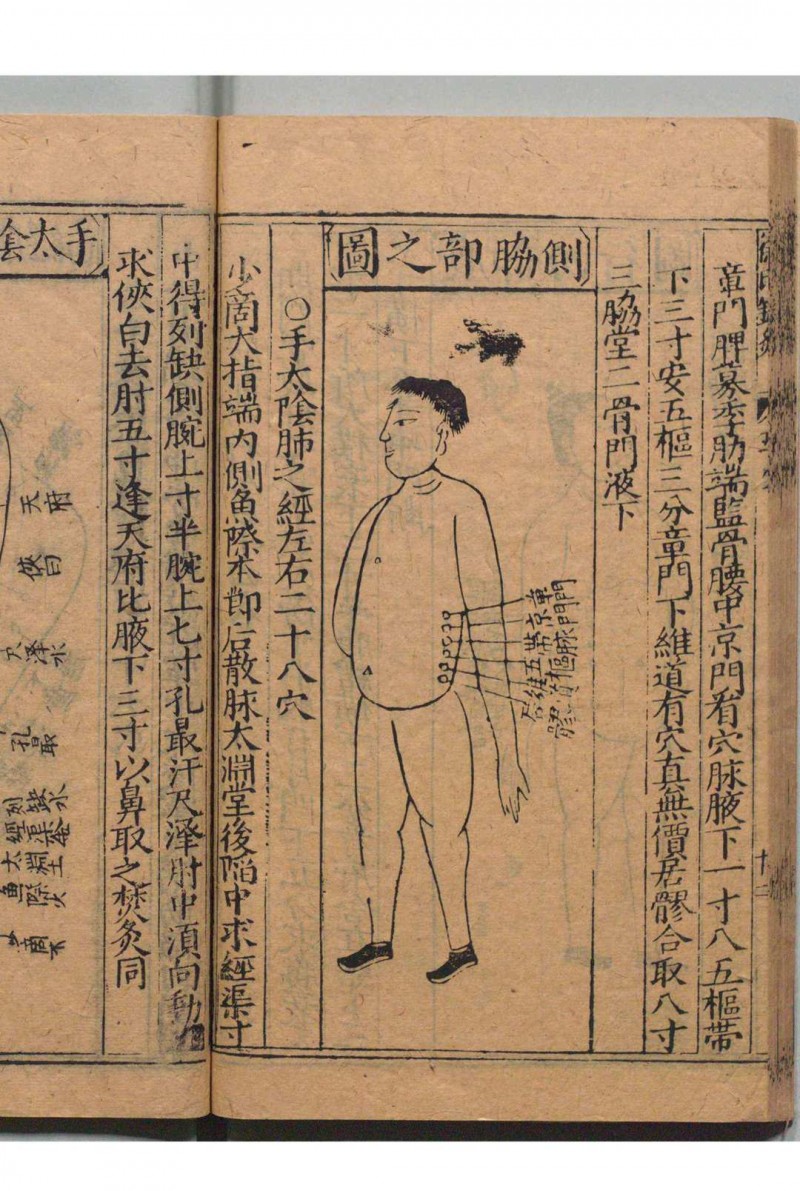 章門脾募季肋端監骨腰中京門看穴脉腋下一寸八五樞帶
下三寸安五樞三分章門下維道有穴真無價居髎合取八寸
三脇堂二骨門液下
側脇部之圖
章門
京門
帶脉
五樞
維道
居髎
○手太陰肺之經左右二十八穴
少商大指端內側魚際本節后散脉太淵堂後陷中求經渠寸
中得列缺側腕上寸半腕上七寸孔最汗尺澤肘中須向動
求俠白去肘五寸逢天府比腋下三寸以鼻取之焚灸同
手太陰
天府
俠白
尺澤水
孔最
列缺
經渠金
太淵土
魚際火
少商木